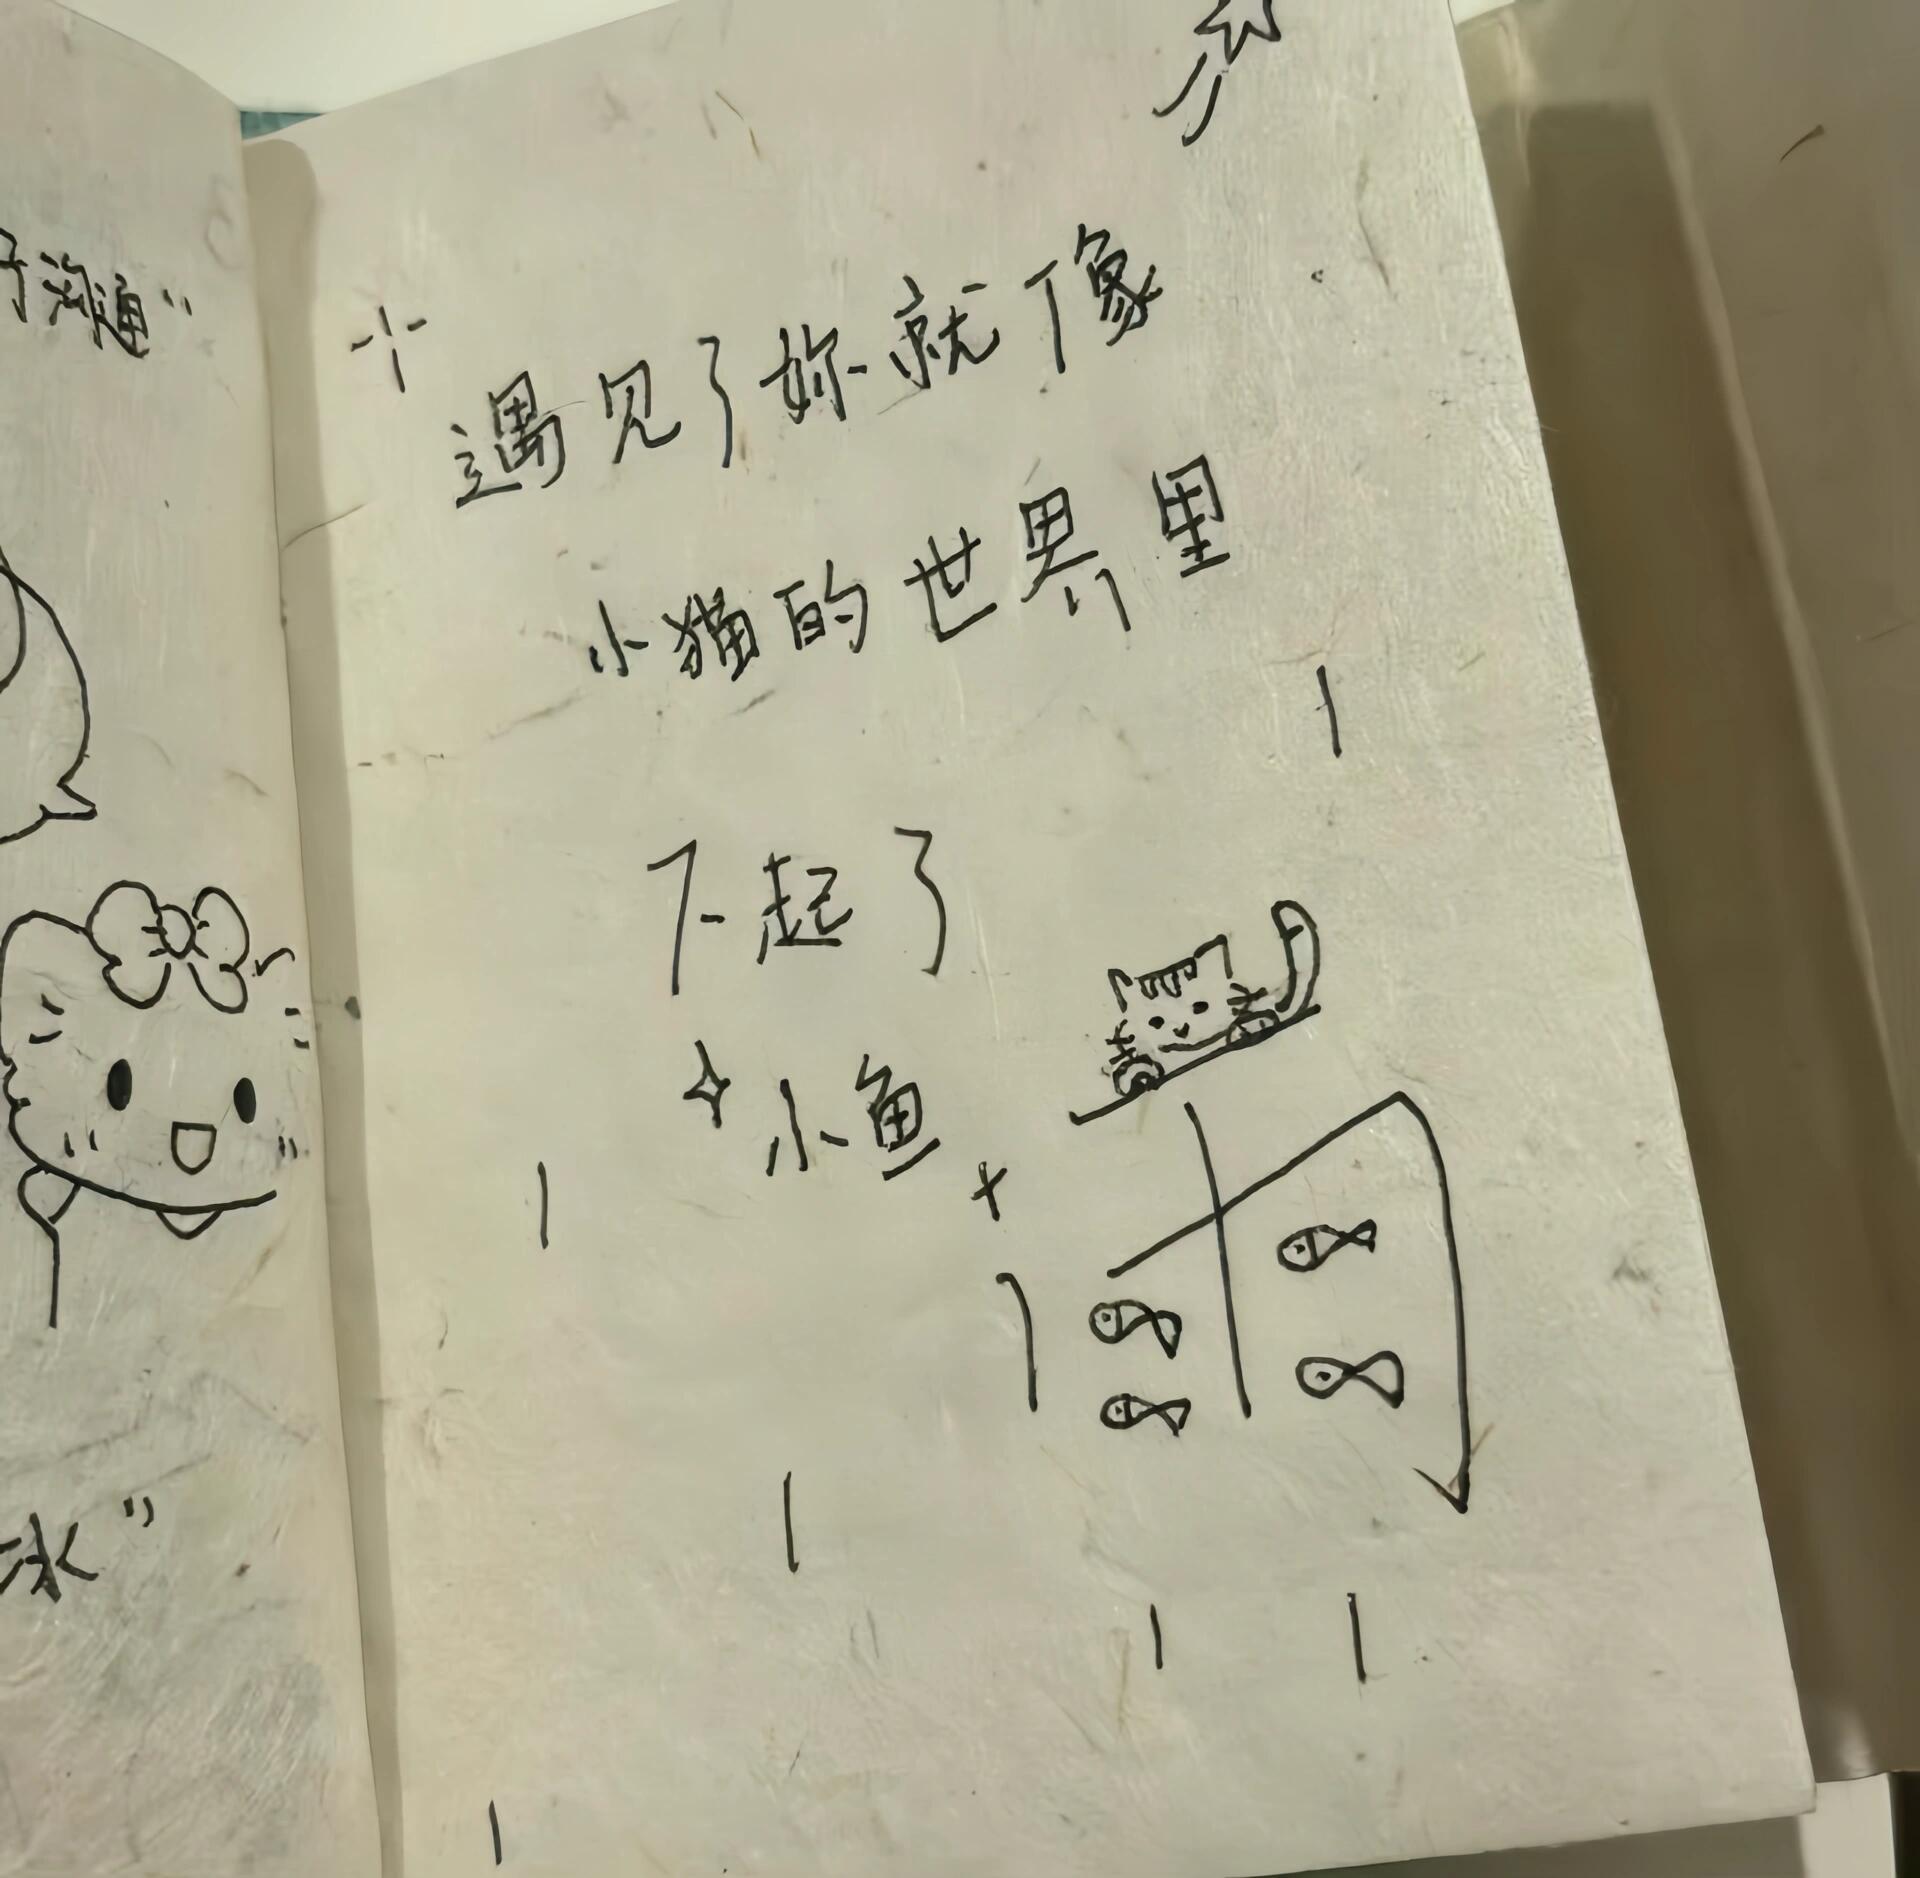 沟通”
冰”
遇见了妳就像
小猫的世界里
下起了
小鱼雨